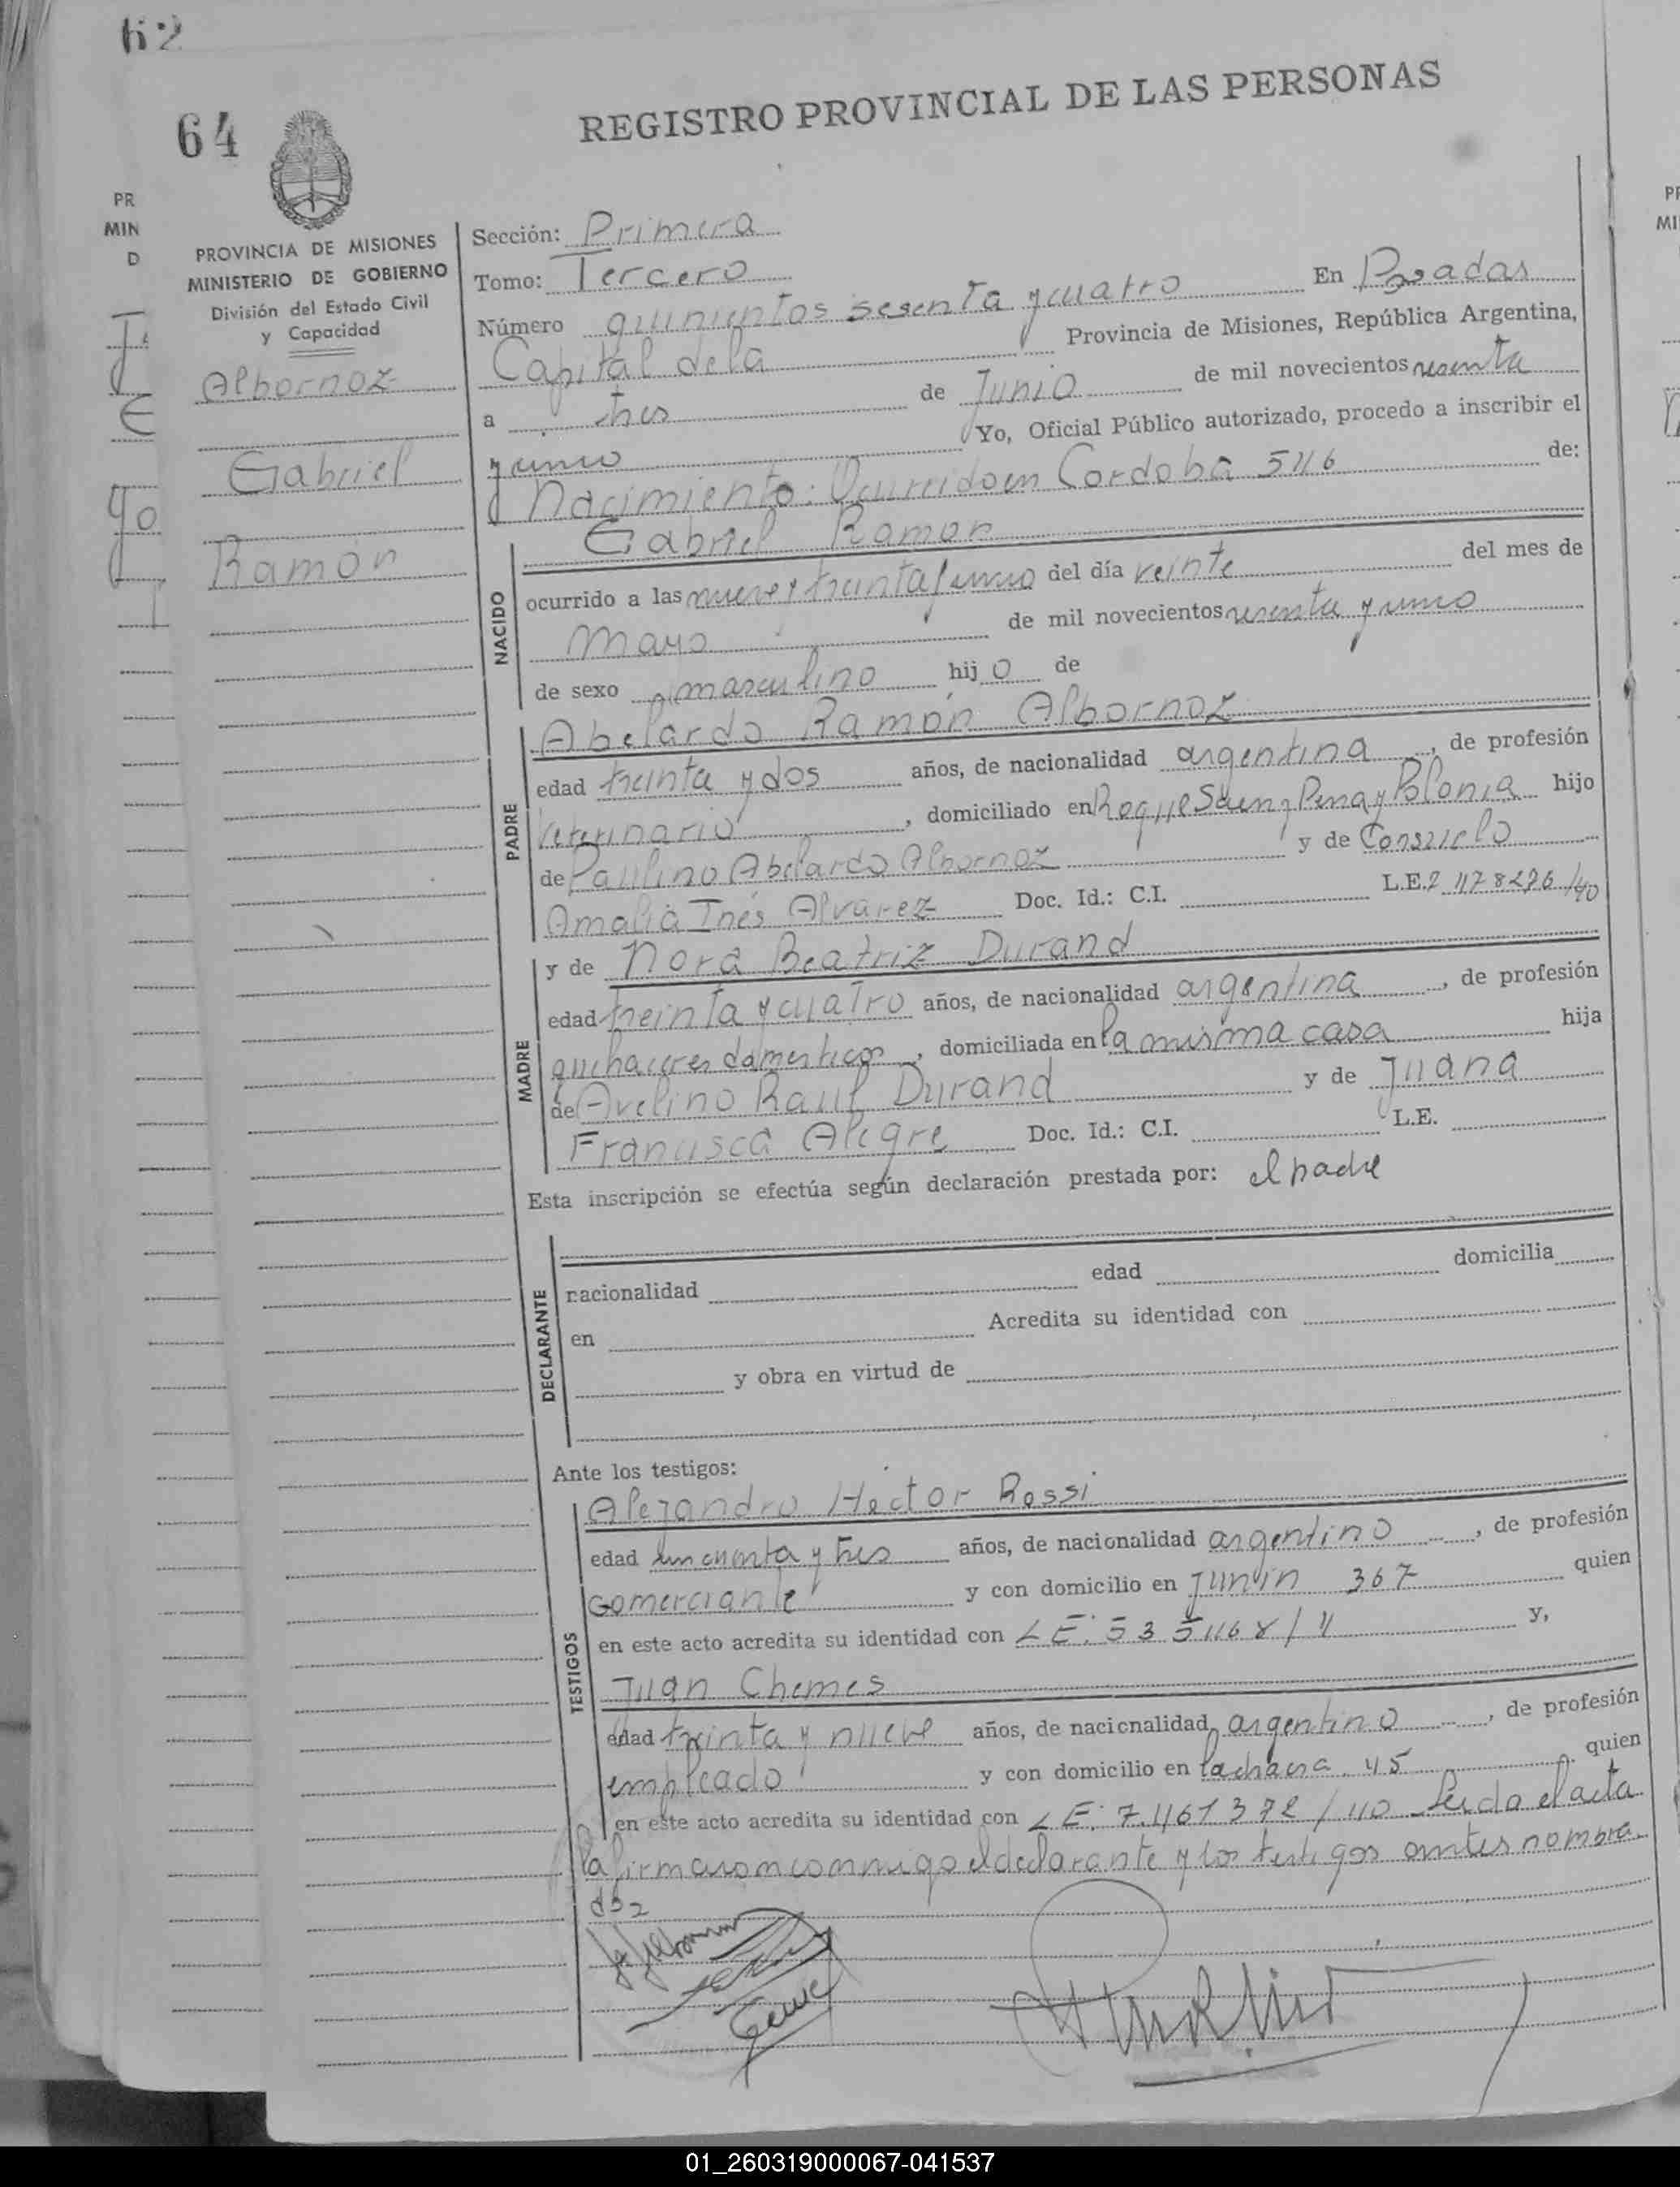 62
64
REGISTRO PROVINCIAL DE LAS PERSONAS
PR
MIN
D
PROVINCIA DE MISIONES
MINISTERIO DE GOBIERNO
División del Estado Civil
y Capacidad
Albornoz
Gabriel
Ramón
Sección: Primera
Tomo: Tercero
Número quinientos sesenta y cuatro En Posadas
Capital de la Provincia de Misiones, República Argentina,
a tres de Junio de mil novecientos sesenta
y uno Yo, Oficial Público autorizado, procedo a inscribir el
Nacimiento: Ocurrido en Cordoba 546 de:
NACIDO
Gabriel Ramon
ocurrido a las nueve y treinta y cinco del día veinte del mes de
Mayo de mil novecientos sesenta y uno
de sexo masculino hijo de
PADRE
Abelardo Ramón Albornoz
edad treinta y dos años, de nacionalidad argentina, de profesión
Veterinario, domiciliado en Roque Saenz Pena y Polonia hijo
de Paulino Abelardo Albornoz y de Consuelo
Amalia Inés Alvarez Doc. Id.: C.I. L.E.
MADRE
y de Nora Beatriz Durand
edad treinta y cuatro años, de nacionalidad argentina, de profesión
quehaceres domesticos, domiciliada en la misma casa hija
de Avelino Raul Durand y de Juana
Francisca Alegre Doc. Id.: C.I. L.E.
Esta inscripción se efectúa según declaración prestada por: el padre
DECLARANTE
nacionalidad edad domicilia
en Acredita su identidad con
y obra en virtud de
Ante los testigos:
TESTIGOS
Alejandro Héctor Rossi
edad cincuenta y tres años, de nacionalidad argentino, de profesión
comerciante y con domicilio en Junin 367 quien
en este acto acredita su identidad con L E. y,
Juan Chemes
edad treinta y nueve años, de nacionalidad argentino, de profesión
empleado y con domicilio en la chacra 45 quien
en este acto acredita su identidad con L E. Leida el acta
la firmaron conmigo el declarante y los testigos antes nombra-
dos
01_260319000067-041537